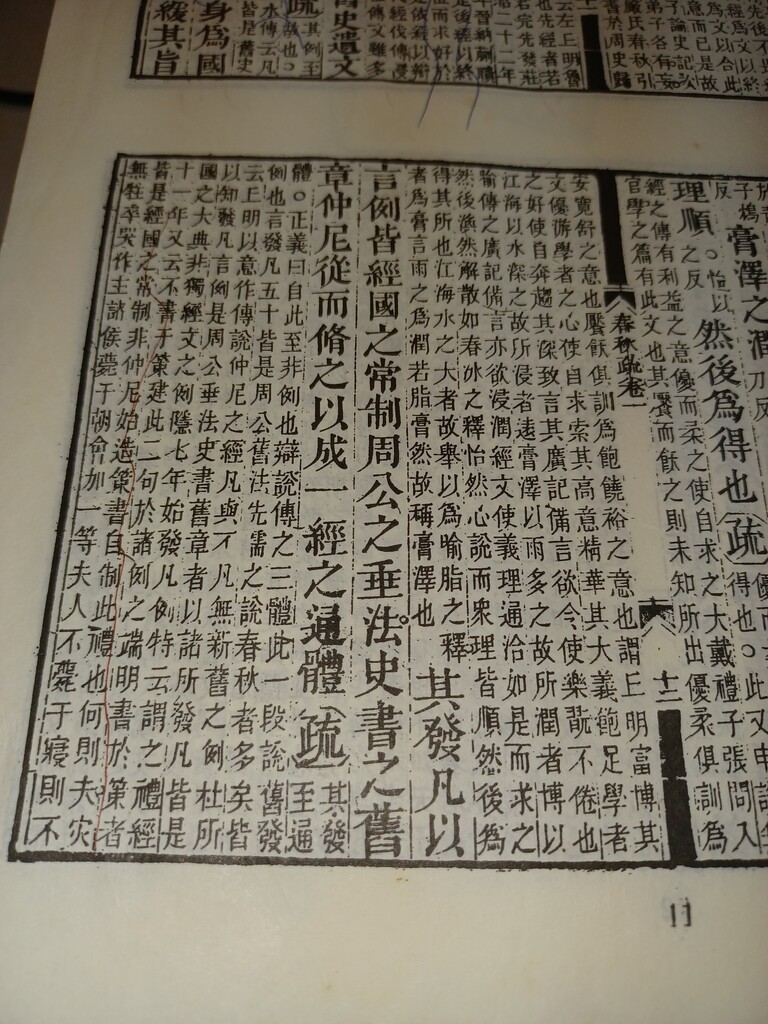 舊史遺文
疏
身為國
緩其旨
膏澤之潤
理順
然後為得也疏
經之傳有利益之意優而柔之使自求之大戴禮子張問入
官學之篇有此文也其饜而飫之則未知所出優柔俱訓為
春秋疏卷一
十二
安寬舒之意也饜飫俱訓為飽饒裕之意也謂丘明富博其
文優游學者之心使自求索其高意精華其大義飽足學者
之好使自奔趨其深致言其廣記備言欲令使樂翫不倦也
江海以水深之故所浸者遠膏澤以雨多之故所潤者博以
喻傳之廣記備言亦欲浸潤經文使義理通洽如是而求之
然後渙然解散如春冰之釋怡然心說而眾理皆順然後為
得其所也江海水之大者故舉以為喻脂之釋
者為膏言雨之為潤若脂膏然故稱膏澤也
其發凡以
言例皆經國之常制周公之垂法史書之舊
章仲尼從而脩之以成一經之通體疏其發至通
體○正義曰自此至非例也辯說傳之三體此一段說舊發
例也言發凡五十皆是周公舊法先儒之說春秋者多矣皆
云丘明以意作傳說仲尼之經凡與不凡無新舊之例杜所
以知發凡言例是周公垂法史書舊章者以諸所發凡皆是
國之大典非獨經文之例隱七年始發凡例特云謂之禮經
十一年又云不書于策建此二句於諸例之端明書於策者
皆是經國之常制非仲尼始造策書自制此禮也何則夫災
無牲卒哭作主諸侯薨于朝會加一等夫人不薨于寢則不
11